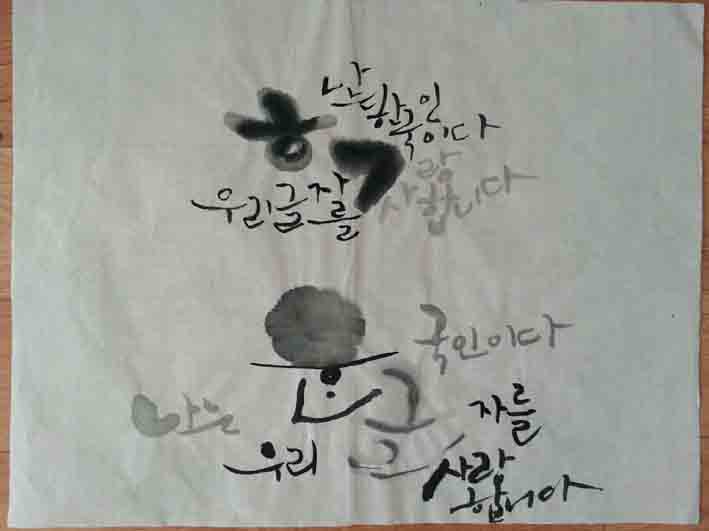 난
한국인이다
우리글자를 사랑합니다
국인이다
나는
우리 자를
사랑
합니다